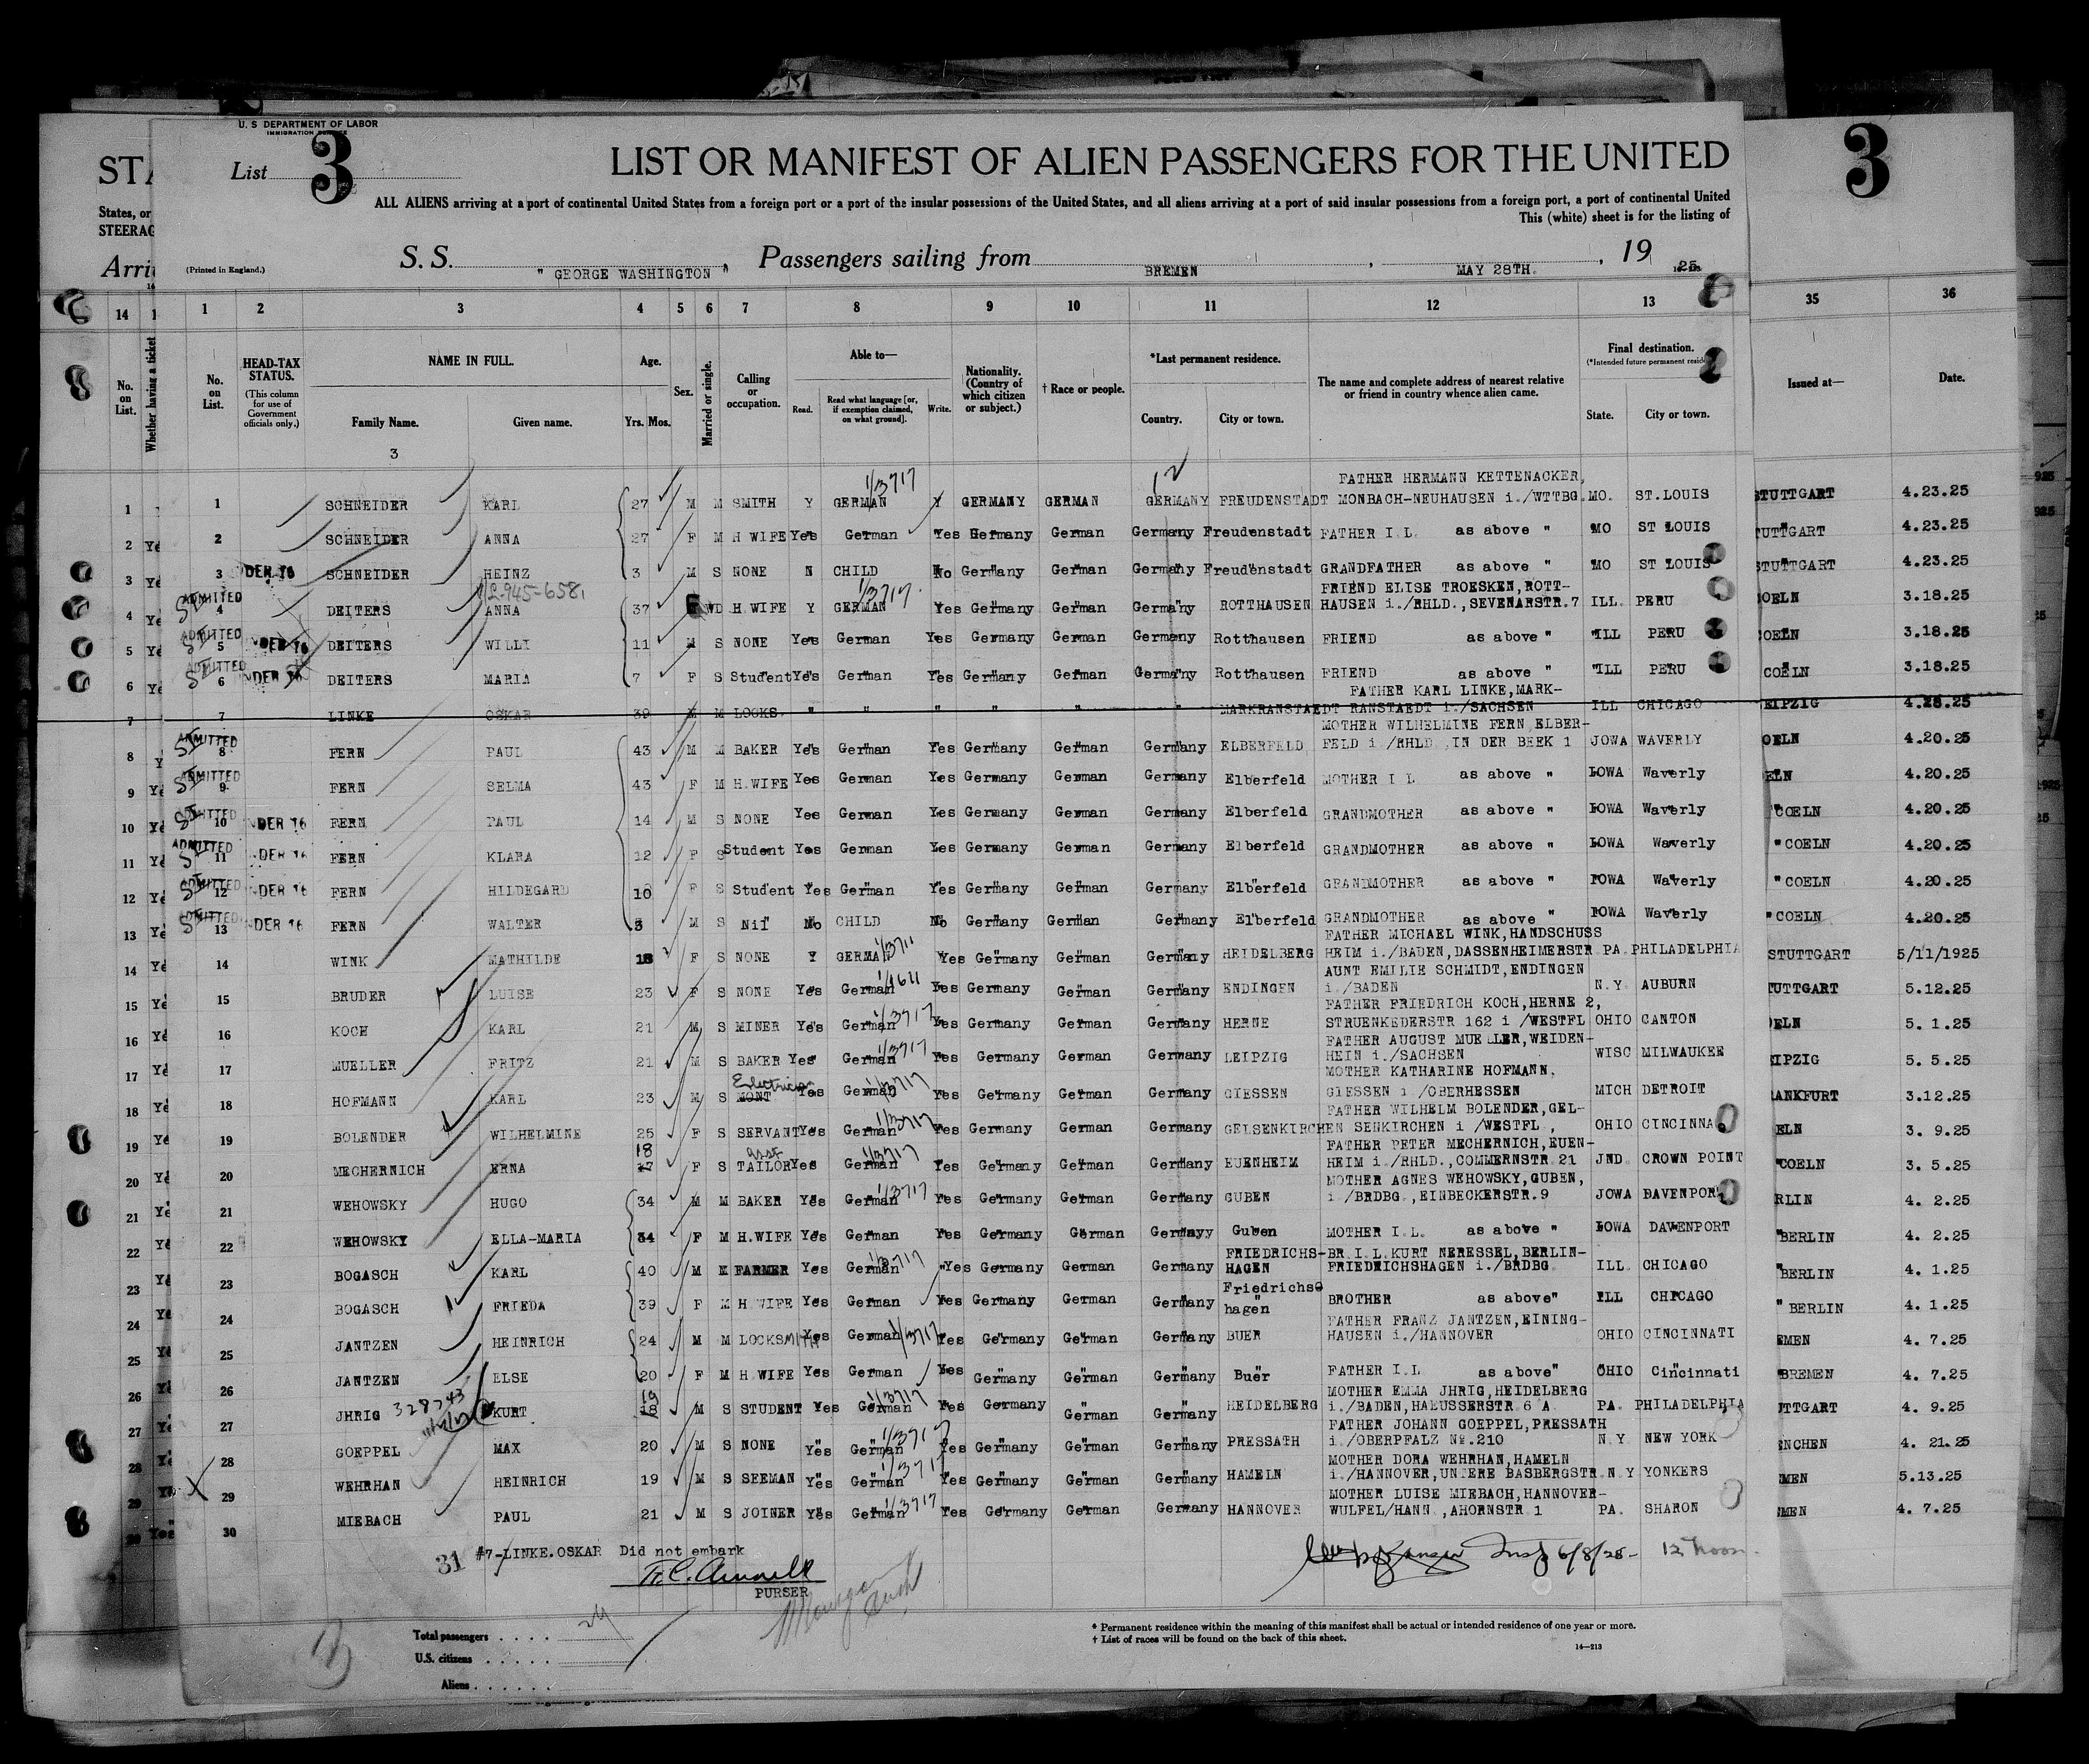 U. S DEPARTMENT OF LABOR
IMMIGRATION SERVICE
STA
List 3
LIST OR MANIFEST OF ALIEN PASSENGERS FOR THE UNITED
3
States, or
STEERAG
ALL ALIENS arriving at a port of continental United States from a foreign port or a port of the insular possessions of the United States, and all aliens arriving at a port of said insular possessions from a foreign port, a port of continental United
This (white) sheet is for the listing of
Arri
(Printed in England.)
S. S. " GEORGE WASHINGTON " , Passengers sailing from BREMEN , MAY 28TH. , 19 25
14 1 2 3 4 5 6 7 8 9 10 11 12 13 35 36
No. on List.
Whether having a ticket
No. on List.
HEAD-TAX STATUS.
(This column for use of Government officials only.)
NAME IN FULL.
Family Name. Given name.
3
Age.
Yrs. Mos.
Sex.
Married or single.
Calling or occupation.
Able to—
Read. Read what language [or, if exemption claimed, on what ground]. Write.
Nationality. (Country of which citizen or subject.)
† Race or people.
*Last permanent residence.
Country. City or town.
The name and complete address of nearest relative or friend in country whence alien came.
Final destination.
(*Intended future permanent resid
State. City or town.
Issued at— Date.
FATHER HERMANN KETTENACKER,
1 1 SCHNEIDER KARL 27 M M SMITH Y GERMAN Y GERMANY GERMAN GERMANY FREUDENSTADT MONBACH-NEUHAUSEN i./WTTBG. MO. ST.LOUIS STUTTGART 4.23.25
2 Ye 2 SCHNEIDER ANNA 27 F M H WIFE Yes German Yes Germany German Germany Freudenstadt FATHER I.L. as above " MO ST LOUIS TUTTGART 4.23.25
3 Ye 3 DER 16 SCHNEIDER HEINZ 3 M S NONE N CHILD No Germany German Germany Freudenstadt GRANDFATHER as above " MO ST LOUIS STUTTGART 4.23.25
FRIEND ELISE TROESKEN,ROTT-
4 Ye ADMITTED 4 DEITERS ANNA 37 F WD H.WIFE Y GERMAN Yes Germany German Germany ROTTHAUSEN HAUSEN i./RHLD.,SEVENARSTR.7 ILL. PERU OELN 3.18.25
5 Ye ADMITTED 5 DER 16 DEITERS WILLI 11 M S NONE Yes German Yes Germany German Germany Rotthausen FRIEND as above " "ILL PERU OELN 3.18.25
6 Ye ADMITTED 6 DER 16 DEITERS MARIA 7 F S Student Yes German Yes Germany German Germany Rotthausen FRIEND as above " "ILL PERU COELN 3.18.25
FATHER KARL LINKE,MARK-
7 7 LINKE OSKAR 39 M M LOCKS. " " " " " " MARKRANSTAEDT RANSTAEDT i./SACHSEN ILL CHICAGO EIPZIG 4.28.25
MOTHER WILHELMINE FERN,ELBER-
8 Y ADMITTED 8 FERN PAUL 43 M M BAKER Yes German Yes Germany German Germany ELBERFELD FELD i./RHLD.,IN DER BEEK 1 JOWA WAVERLY OELN 4.20.25
9 Ye ADMITTED 9 FERN SELMA 43 F M H.WIFE Yes German Yes Germany German Germany Elberfeld MOTHER I L as above " IOWA Waverly ELN 4.20.25
10 Ye ADMITTED 10 DER 16 FERN PAUL 14 M S NONE Yes German Yes Germany German Germany Elberfeld GRANDMOTHER as above " IOWA Waverly "COELN 4.20.25
11 Ye ADMITTED 11 DER 16 FERN KLARA 12 F S Student Yes German Yes Germany German Germany Elberfeld GRANDMOTHER as above " IOWA Waverly "COELN 4.20.25
12 Ye ADMITTED 12 DER 16 FERN HILDEGARD 10 F S Student Yes German Yes Germany German Germany Elberfeld GRANDMOTHER as above " IOWA Waverly "COELN 4.20.25
13 Ye ADMITTED 13 DER 16 FERN WALTER 3 M S Nil No CHILD No Germany German Germany Elberfeld GRANDMOTHER as above " IOWA Waverly "COELN 4.20.25
FATHER MICHAEL WINK,HANDSCHUSS
14 Ye 14 WINK MATHILDE 18 F S NONE Y GERMAN Yes Germany German Germany HEIDELBERG HEIM i./BADEN,DASSENHEIMERSTR PA. PHILADELPHIA STUTTGART 5/11/1925
AUNT EMILIE SCHMIDT,ENDINGEN
15 Ye 15 BRUDER LUISE 23 F S NONE Yes German Yes Germany German Germany ENDINGEN i./BADEN N.Y. AUBURN TUTTGART 5.12.25
FATHER FRIEDRICH KOCH,HERNE 2,
16 Ye 16 KOCH KARL 21 M S MINER Yes German Yes Germany German Germany HERNE STRUENKEDERSTR 162 i /WESTFL OHIO CANTON OELN 5. 1.25
FATHER AUGUST MUELLER,WEIDEN-
17 Ye 17 MUELLER FRITZ 21 M S BAKER Yes German Yes Germany German Germany LEIPZIG HEIN i./SACHSEN WISC MILWAUKEE EIPZIG 5. 5.25
MOTHER KATHARINE HOFMANN,
18 Ye 18 HOFMANN KARL 23 M S MONT Electrician Yes German Yes Germany German Germany GIESSEN GIESSEN i /OBERHESSEN MICH DETROIT ANKFURT 3.12.25
FATHER WILHELM BOLENDER,GEL-
19 Ye 19 BOLENDER WILHELMINE 25 F S SERVANT Yes German Yes Germany German Germany GELSENKIRCHEN SENKIRCHEN i /WESTFL , OHIO CINCINNA ELN 3. 9.25
FATHER PETER MECHERNICH,EUEN-
20 Ye 20 MECHERNICH ERNA 17 18 F S asst TAILOR Yes German Yes Germany German Germany EUENHEIM HEIM i./RHLD.,COMMERNSTR.21 JND. CROWN POINT "COELN 3. 5.25
MOTHER AGNES WEHOWSKY,GUBEN,
21 Ye 21 WEHOWSKY HUGO 34 M M BAKER Yes German Yes Germany German Germany GUBEN i./BRDBG.,EINBECKERSTR.9 JOWA DAVENPOR RLIN 4. 2.25
22 Ye 22 WEHOWSKY ELLA-MARIA 34 F M H.WIFE Yes German Yes Germany German Germany Guben MOTHER I.L. as above " IOWA DAVENPORT "BERLIN 4. 2.25
FRIEDRICHS- BR.I.L.KURT NERESSEL,BERLIN-
23 Ye 23 BOGASCH KARL 40 M M FARMER Yes German "Yes Germany German Germany HAGEN FRIEDRICHSHAGEN i./BRDBG. ILL. CHICAGO "BERLIN 4. 1.25
24 Ye 24 BOGASCH FRIEDA 39 F M H.WIFE Yes German Yes Germany German Germany Friedrichs hagen BROTHER as above" ILL CHICAGO "BERLIN 4. 1.25
FATHER FRANZ JANTZEN,EINING-
25 Ye 25 JANTZEN HEINRICH 24 M M LOCKSMITH Yes German Yes Germany German Germany BUER HAUSEN i./HANNOVER OHIO CINCINNATI EMEN 4. 7.25
26 Ye 26 JANTZEN ELSE 20 F M H.WIFE Yes German Yes Germany German Germany Buer FATHER I.L as above" OHIO Cincinnati "BREMEN 4. 7.25
MOTHER EMMA JHRIG,HEIDELBERG
27 Ye 27 JHRIG 328743 KURT 18 19 M S STUDENT Yes German Yes Germany German Germany HEIDELBERG i./BADEN,HAEUSSERSTR 6 A. PA. PHILADELPHIA TTGART 4. 9.25
FATHER JOHANN GOEPPEL,PRESSATH
28 Ye 28 GOEPPEL MAX 20 M S NONE Yes German Yes Germany German Germany PRESSATH i./OBERPFALZ No.210 N.Y NEW YORK ENCHEN 4. 21.25
MOTHER DORA WEHRHAN,HAMELN
29 Ye X 29 WEHRHAN HEINRICH 19 M S SEEMAN Yes German Yes Germany German Germany HAMELN i./HANNOVER,UNTERE BASBERGSTR N.Y YONKERS EMEN 5.13.25
MOTHER LUISE MIEBACH,HANNOVER-
30 Yes 30 MIEBACH PAUL 21 M S JOINER Yes German Yes Germany German Germany HANNOVER WULFEL/HANN.,AHORNSTR 1 PA. SHARON EMEN 4. 7.25
31 #7-LINKE.OSKAR Did not embark
6/8/25- 12 noon
PURSER
Total passengers . . . . 29
U.S. citizens . . . . .
Aliens . . . . . .
* Permanent residence within the meaning of this manifest shall be actual or intended residence of one year or more.
† List of races will be found on the back of this sheet.
14—213